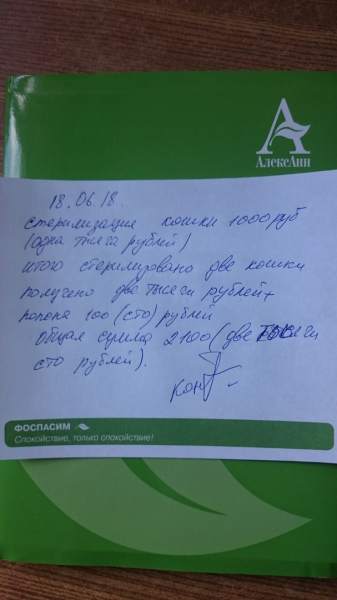 АлексАнн
18.06.18.
стерилизация кошки 1000 руб
(одна тысяча рублей)
итого стерилизовано две кошки
получено две тысячи рублей+
попона 100 (сто) рублей
Общая сумма 2100 (две тысячи
сто рублей).
ФОСПАСИМ
Спокойствие, только спокойствие!